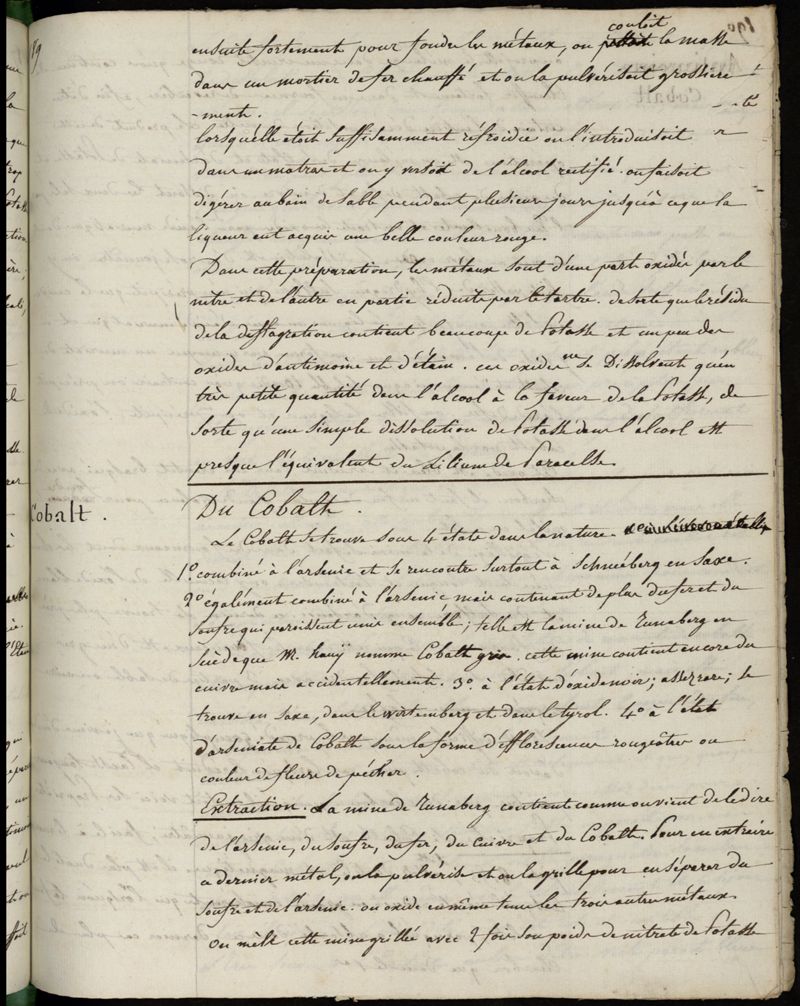 couloit
ensuite fortement pour fondre les métaux, on la masse
dans un mortier de fer chauffé et on la pulvérisoit grossiere
-ment.
lorsquélle étoit suffisamment réfroidie on l'introduisoit
dans un matras et on y versoit de l'álcool rectifié. on faisoit
digérer au bain de sable pendant plusieurs jours jusqu'à ce que la
liqueur eut acquis une belle couleur rouge.
Dans cette préparation, les métaux sont d'une part oxidés par le
nitre et de l'autre en partie réduits par le tartre. de sorte que le résidu
de la déflagration contient beaucoup de Potasse et un peu des
oxides d'antimoine et d'étain. ces oxides ne se Dissolvent qu'en
très petite quantité dans l'álcool à la faveur de la Potasse, de
sorte qu'une simple dissolution de Potasse dans l'álcool est
presque l'équivalent du Lilium de Paracelse.
Cobalt.
Du Cobalth.
Le Cobalth se trouve sous 4 états dans la nature.
1º. combiné à l'arsenic et se rencontre surtout à Schnéeberg en Saxe.
2º également combiné à l'arsenic mais contenant de plus du fer et du
soufre qui paroissent unis ensemble; telle est la mine de Tunaberg en
Suède que M. hauÿ nomme Cobalth gris. cette mine contient encore du
cuivre mais accidentellement. 3º. à l'état d'óxide noir; assez rare; se
trouve en Saxe, dans le wirtemberg et dans le tyrol. 4º à l'état
d'arseniate de Cobalth sous la forme d'éfflorescences rougeâtres ou
couleur de fleurs de pécher.
Extraction. La mine de Tunaberg contient comme on vient de le dire
de l'arsenic, du soufre, du fer, du cuivre et du Cobalth. Pour en extraire
ce dernier métal, on la pulvérise et on la grille pour en séparer du
soufre et de l'arsenic. on oxide en même tems les trois autres métaux.
On mêle cette mine grillée avec 2 fois son poids de nitrate de Potasse